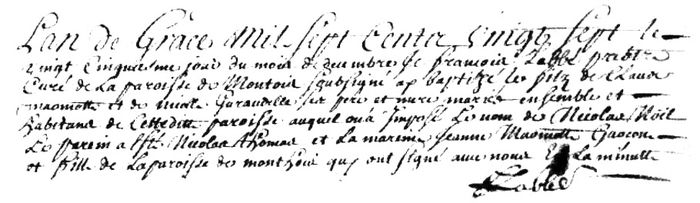 Lan de Grace mil sept centz vingt sept le
vingt cinquiesme jour du mois de decembre Je francois Labbé prebtre
Curé de la paroisse de Montois soubsigné ay baptizé le filz de Claude
et de ses pere et mere mariés ensemble et
habitans de Cettedite paroisse auquel on a imposé le nom de Nicolas Noël
Le parein a esté Nicolas Thomas et La mareine Jeanne Garcon
et fille de La paroisse de monthois quy ont signé avec nous La minutte
Labbé